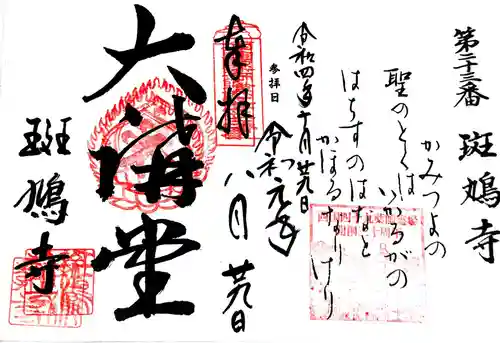 第二十三番 斑鳩寺
かみつよの
聖のとくは
いかるがの
はちすのはなと
かほるなりけり
令和四年十月廿九日
参拝日
令和元年
奉拝 八月廿九日
大講堂
斑鳩寺